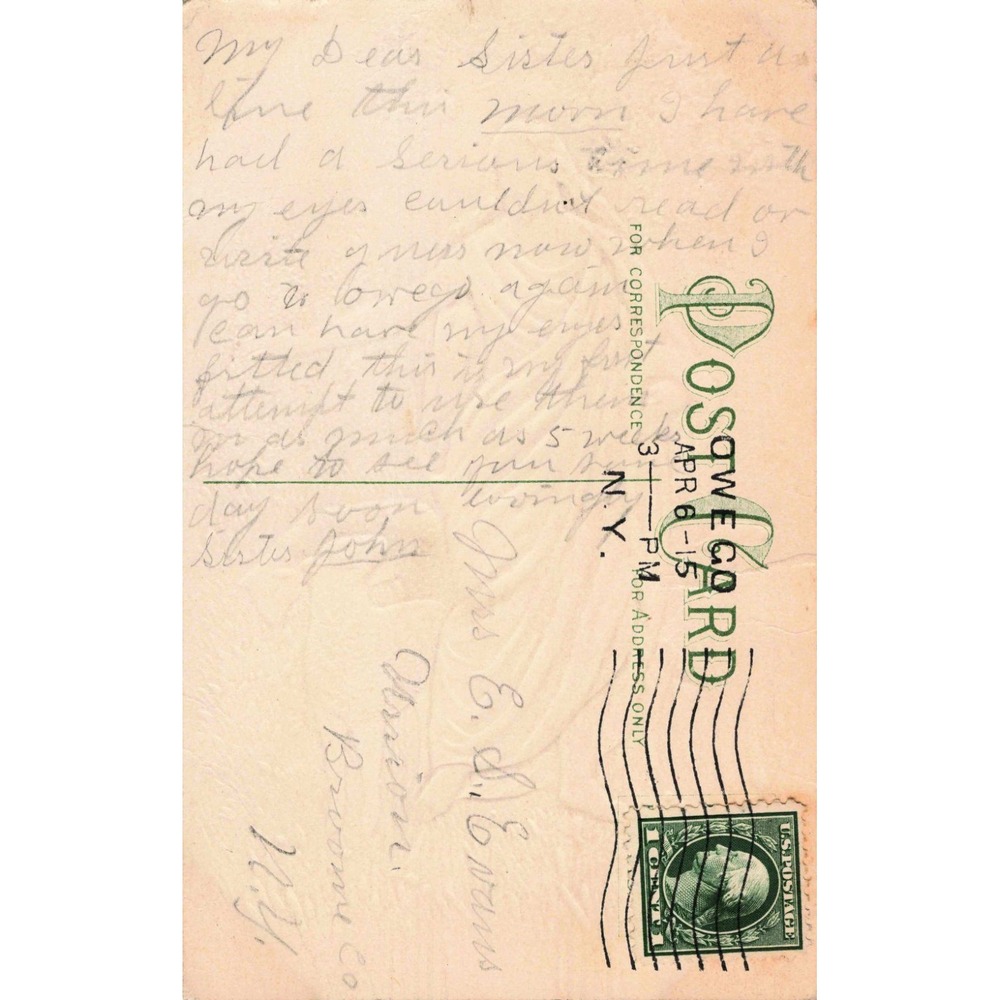 My Dear Sister Just a
line this morn I have
had a serious time with
my eyes couldnt read or
write guess now when I
go to Owego again
I can have my eyes
fitted this is my first
attempt to use them
for as much as 5 weeks
hope to see you some
day soon lovingly
Sister John
POST CARD
FOR CORRESPONDENCE
FOR ADDRESS ONLY
OWEGO
APR 6-15
3—PM
N.Y.
U.S. POSTAGE
1 CENT 1
Mrs E. S. Evans
Union.
Broome Co
N.Y.